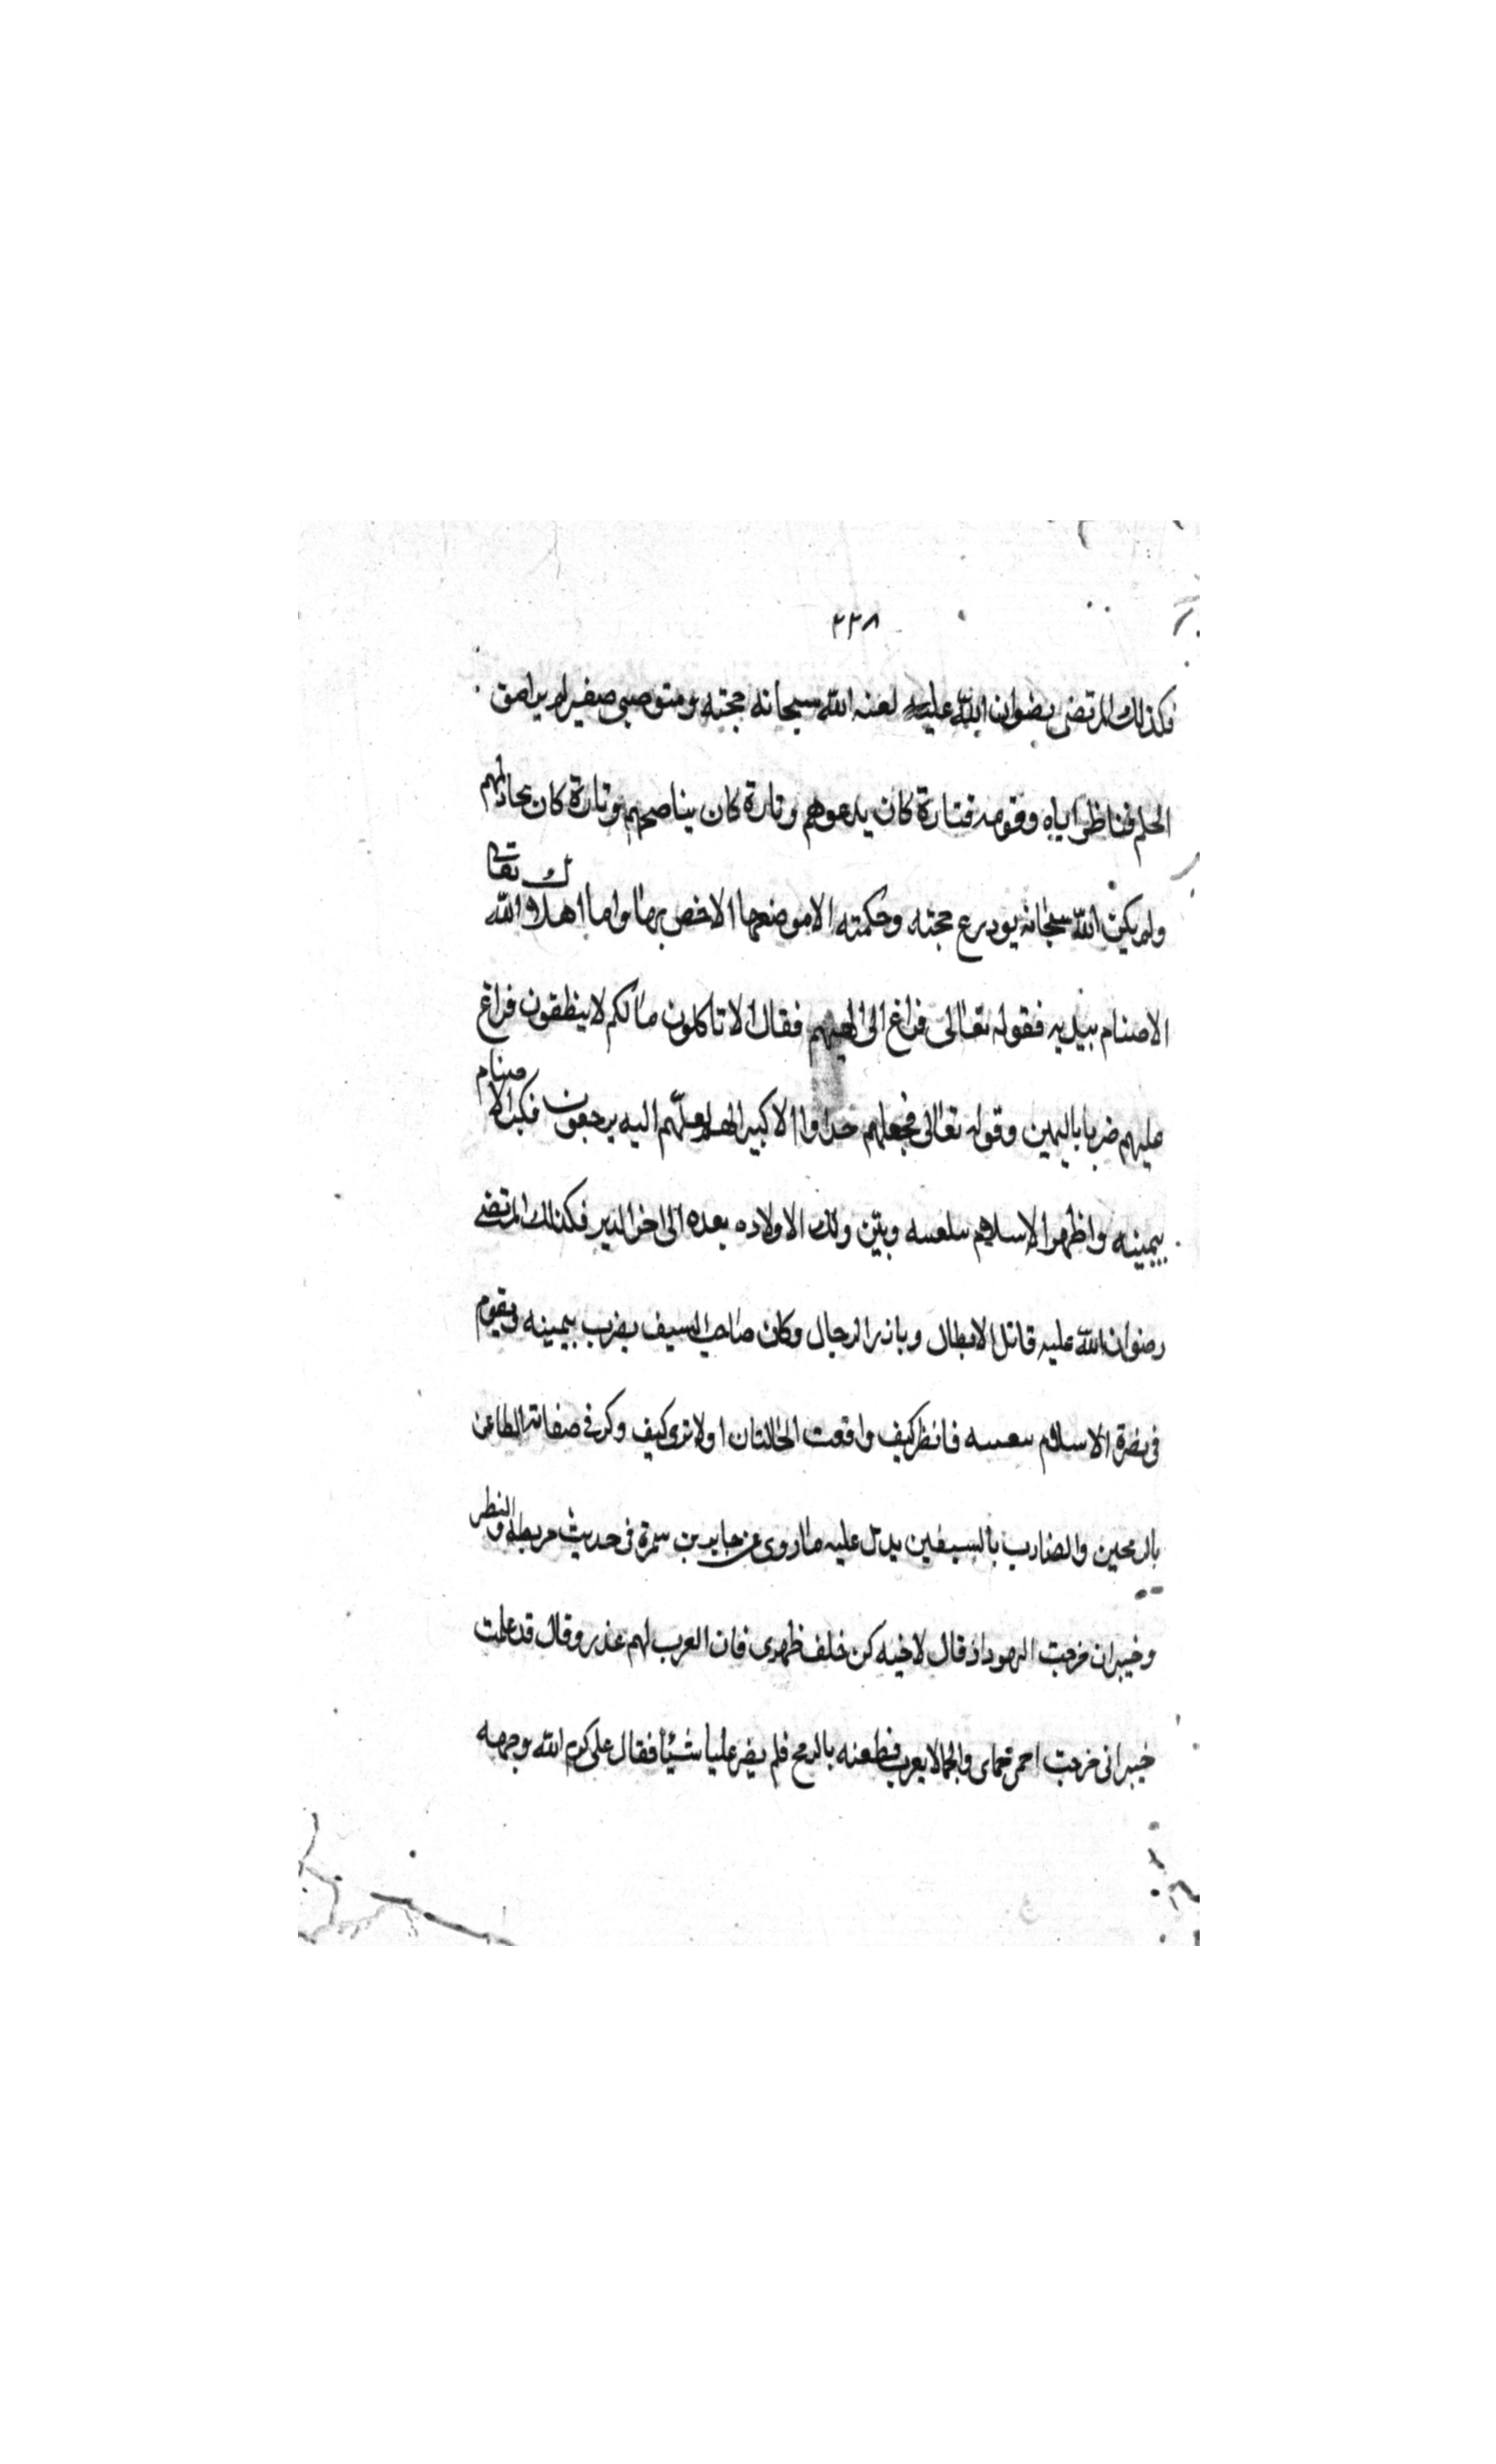 ٢٣٨
فكذلك المرتضى رضوان الله عليه لعنه الله سبحانه حجته وهو صبي صغير لم يراهق
الحلم فناظر اباه وقومه فتارة كان يدعوهم وتارة كان يناصحهم وتارة كان يجادلهم
ولم يكن الله سبحانه يودع حجته وحكمته الا موضعها الاخص بها واما اهلاك الله تعالى
الاصنام بيديه فقوله تعالى فراغ الى الهتهم فقال الا تاكلون مالكم لا ينطقون فراغ
عليهم ضربا باليمين وقوله تعالى فجعلهم جذاذا الا كبيرا لهم لعلهم اليه يرجعون فكب الاصنام
بيمينه واظهر الاسلام وبين ذلك الاولاده بعده الى اخر الدير فكذلك المرتضى
رضوان الله عليه قاتل الابطال وبارز الرجال وكان صاحب السيف يضرب بيمينه ويقوم
فى نصرة الاسلام فانظر كيف واقعت الحالتان اولا ترى كيف ذكر فى صفاته الطاعن
بالرمحين والضارب بالسيفين يدل عليه ما روى عن جابر بن سمرة فى حديث قريظه والنظر
وخيبر ان خرجت اليهود اذ قال لاخيه كن خلف ظهرى فان العرب لهم عذر وقال قد علمت
خيبر انى فطعنه بالرمح فلم يضر عليا شيئا فقال على كرم الله وجهه